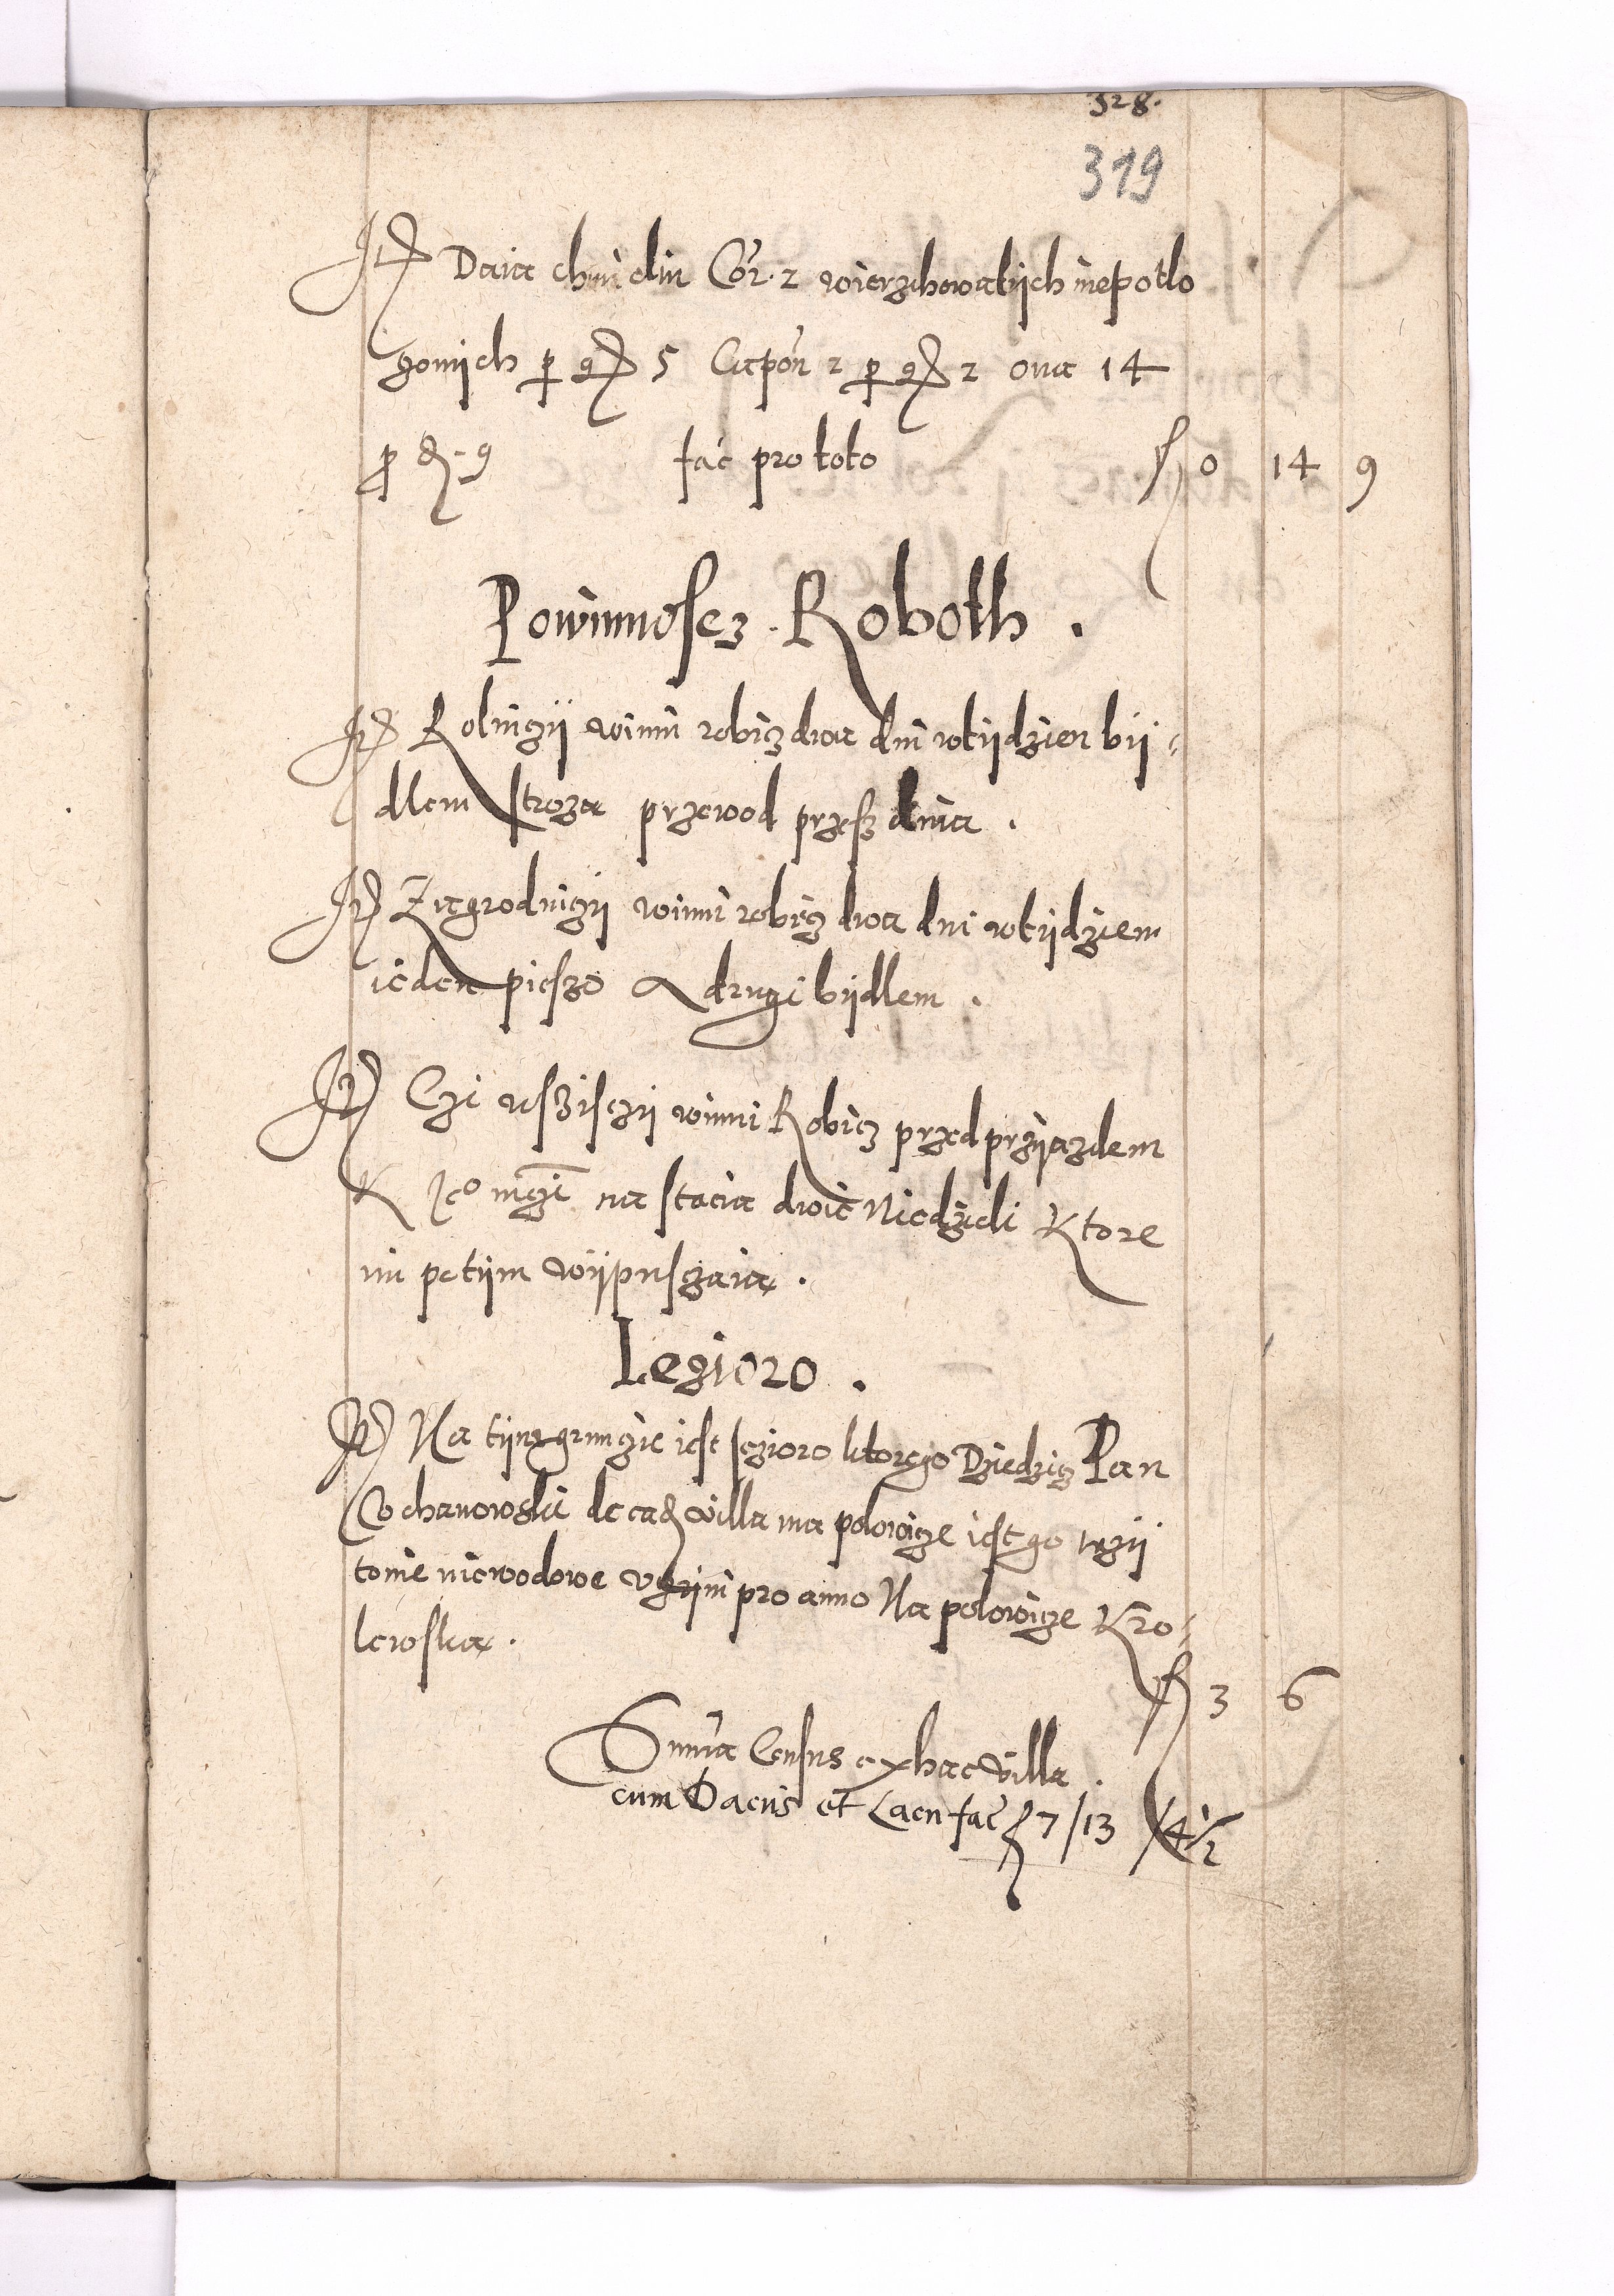 328.
319
It Daia chmielu Cor. 2 wierzchowatijch niepotlo
gonijch p gr 5 Capon 2 p gr 2 oua 14
p d. 9 fac pro toto f 0 14 9
Powinnoscz Roboth .
It Rolniczij winni robicz dwa dni wtijdzien bij-
dlem stroza przewod przesz dnia .
It Zagrodniczij winni robicz dwa dni wtijdziem
ieden pieszo A drugi bijdlem .
It Czi wszisczij winni Robicz przed przijazdem
K Jeo mczi na stacia dwie Niedzieli Ktore
im potijm wijpusczaia .
Iezioro .
It Na tijm gruncie iest iezioro ktorego Dziedzicz Pan
Cochanowski de ead villa ma polowicze iest go trzij
tonie niewodowe vczijni pro anno Na polowicze Kro-
lewska .
f 3 6
Summa Census ex hac villa .
cum Daciis et Lacu fac f 7 / 13 / 4 1/2